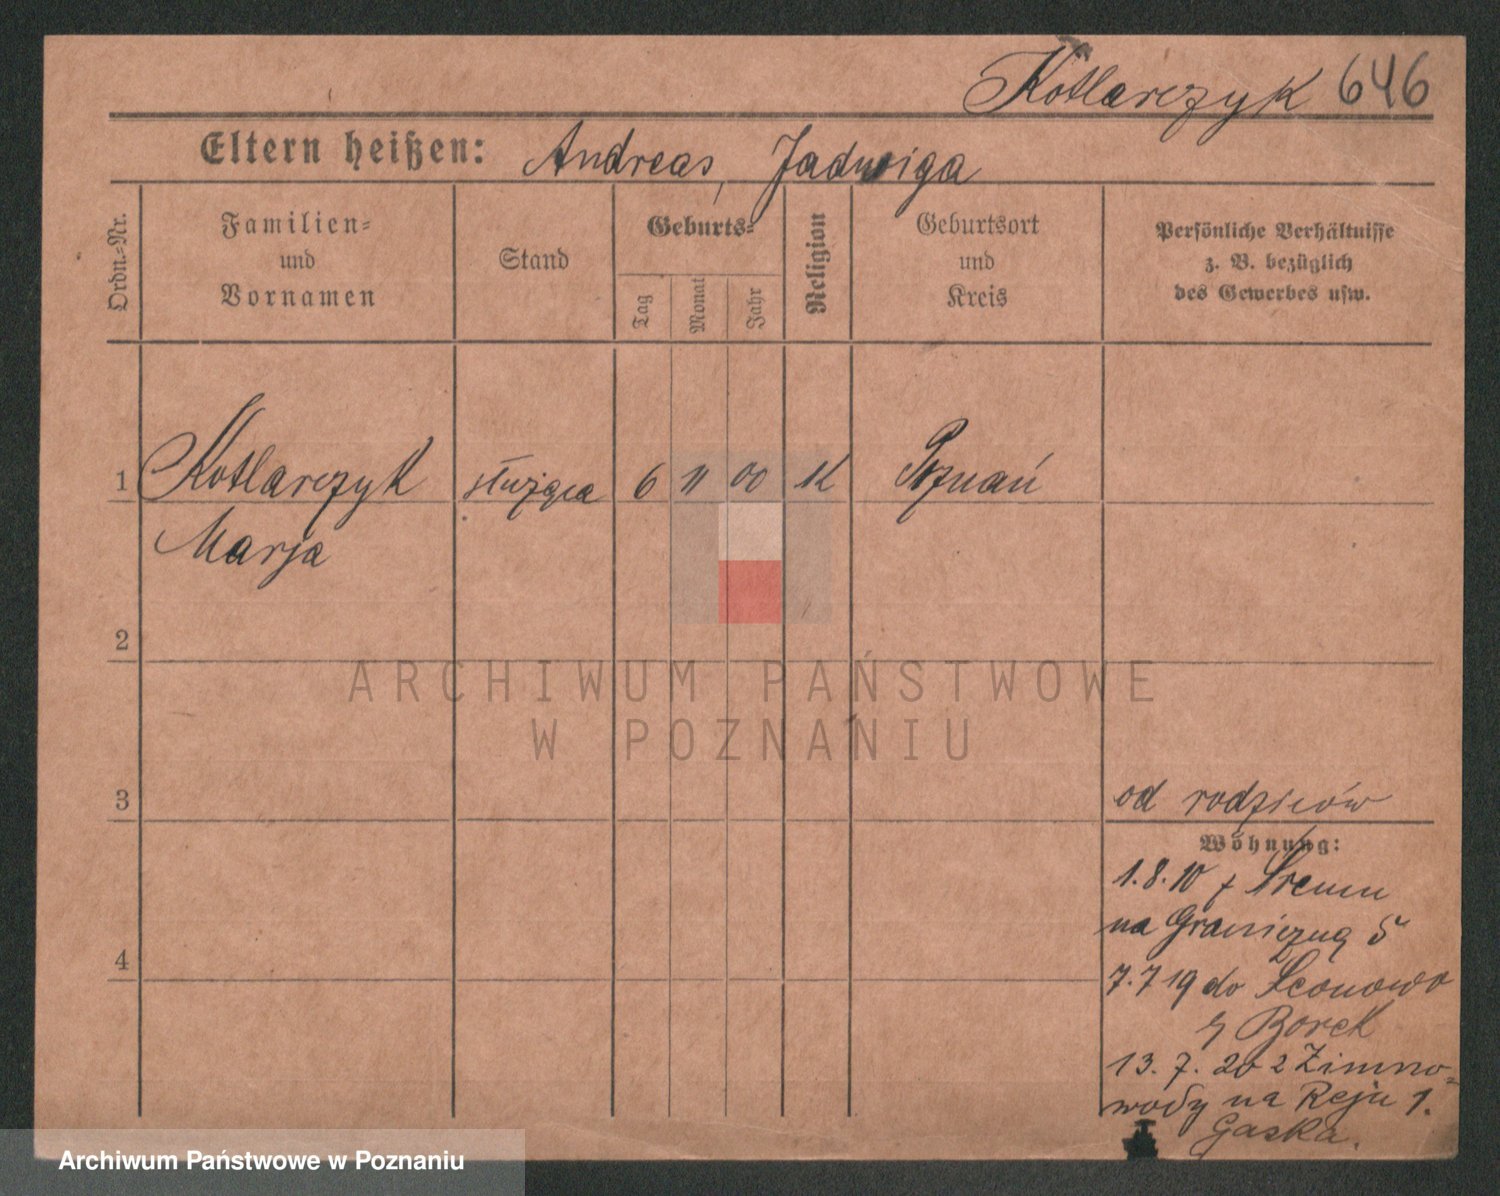 Kotlarczyk 646
Eltern heißen: Andreas, Jadwiga
Ordn.-Nr.
Familien-
und
Vornamen
Stand
Geburts-
Tag
Monat
Jahr
Religion
Geburtsort
und
Kreis
Persönliche Verhältnisse
z. B. bezüglich
des Gewerbes usw.
1 Kotlarczyk służąca 6 11 00 K Poznań
Marja
2
ARCHIWUM PAŃSTWOWE
W POZNANIU
3
od rodziców
Wohnung:
1.8.10 z Śremu
na Graniczną 5
4
7.7 19 do
z Borek
13.7.20 z Zimno-
wody na Reja 1.
Gaska.
Archiwum Państwowe w Poznaniu